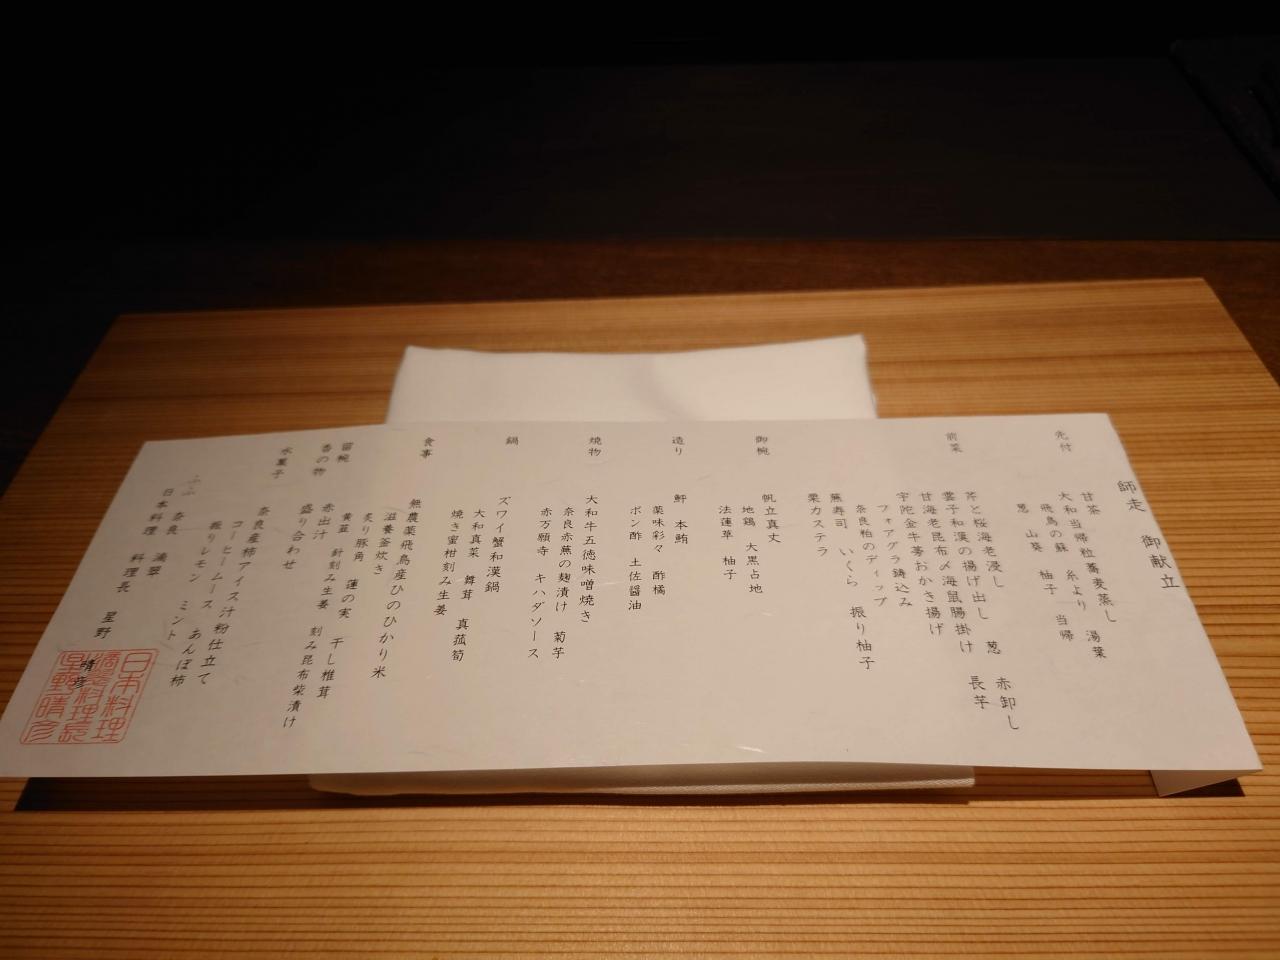 師走 御献立
先付
甘茶
大和当帰粒蕎麦蒸し 湯葉
飛鳥の蘇 糸より 当帰
葱 山葵 柚子
前菜
芹と桜海老浸し 葱 赤卸し
雲子和漢の揚げ出し 長芋
甘海老昆布〆海鼠腸掛け
宇陀金牛蒡おかき揚げ
フォアグラ鋳込み
奈良粕のディップ
蕪寿司 いくら 振り柚子
栗カステラ
御椀
帆立真丈
地鶏 大黒占地
法蓮草 柚子
造り
鮃 本鮪
薬味彩々 酢橘
ポン酢 土佐醤油
焼物
大和牛五徳味噌焼き
奈良赤蕪の麹漬け 菊芋
赤万願寺 キハダソース
鍋
ズワイ蟹和漢鍋
大和真菜 舞茸 真菰筍
焼き蜜柑刻み生姜
食事
無農薬飛鳥産ひのひかり米
滋養釜炊き
炙り豚角 蓮の実 干し椎茸
黄韮 針刻み生姜 刻み昆布柴漬け
留椀
赤出汁
香の物
盛り合わせ
水菓子
奈良産柿アイス汁粉仕立て
コーヒームース あんぽ柿
振りレモン ミント
ふふ 奈良
日本料理 滴翠
料理長 星野 晴彦
日本料理
滴翠料理長
星野晴彦